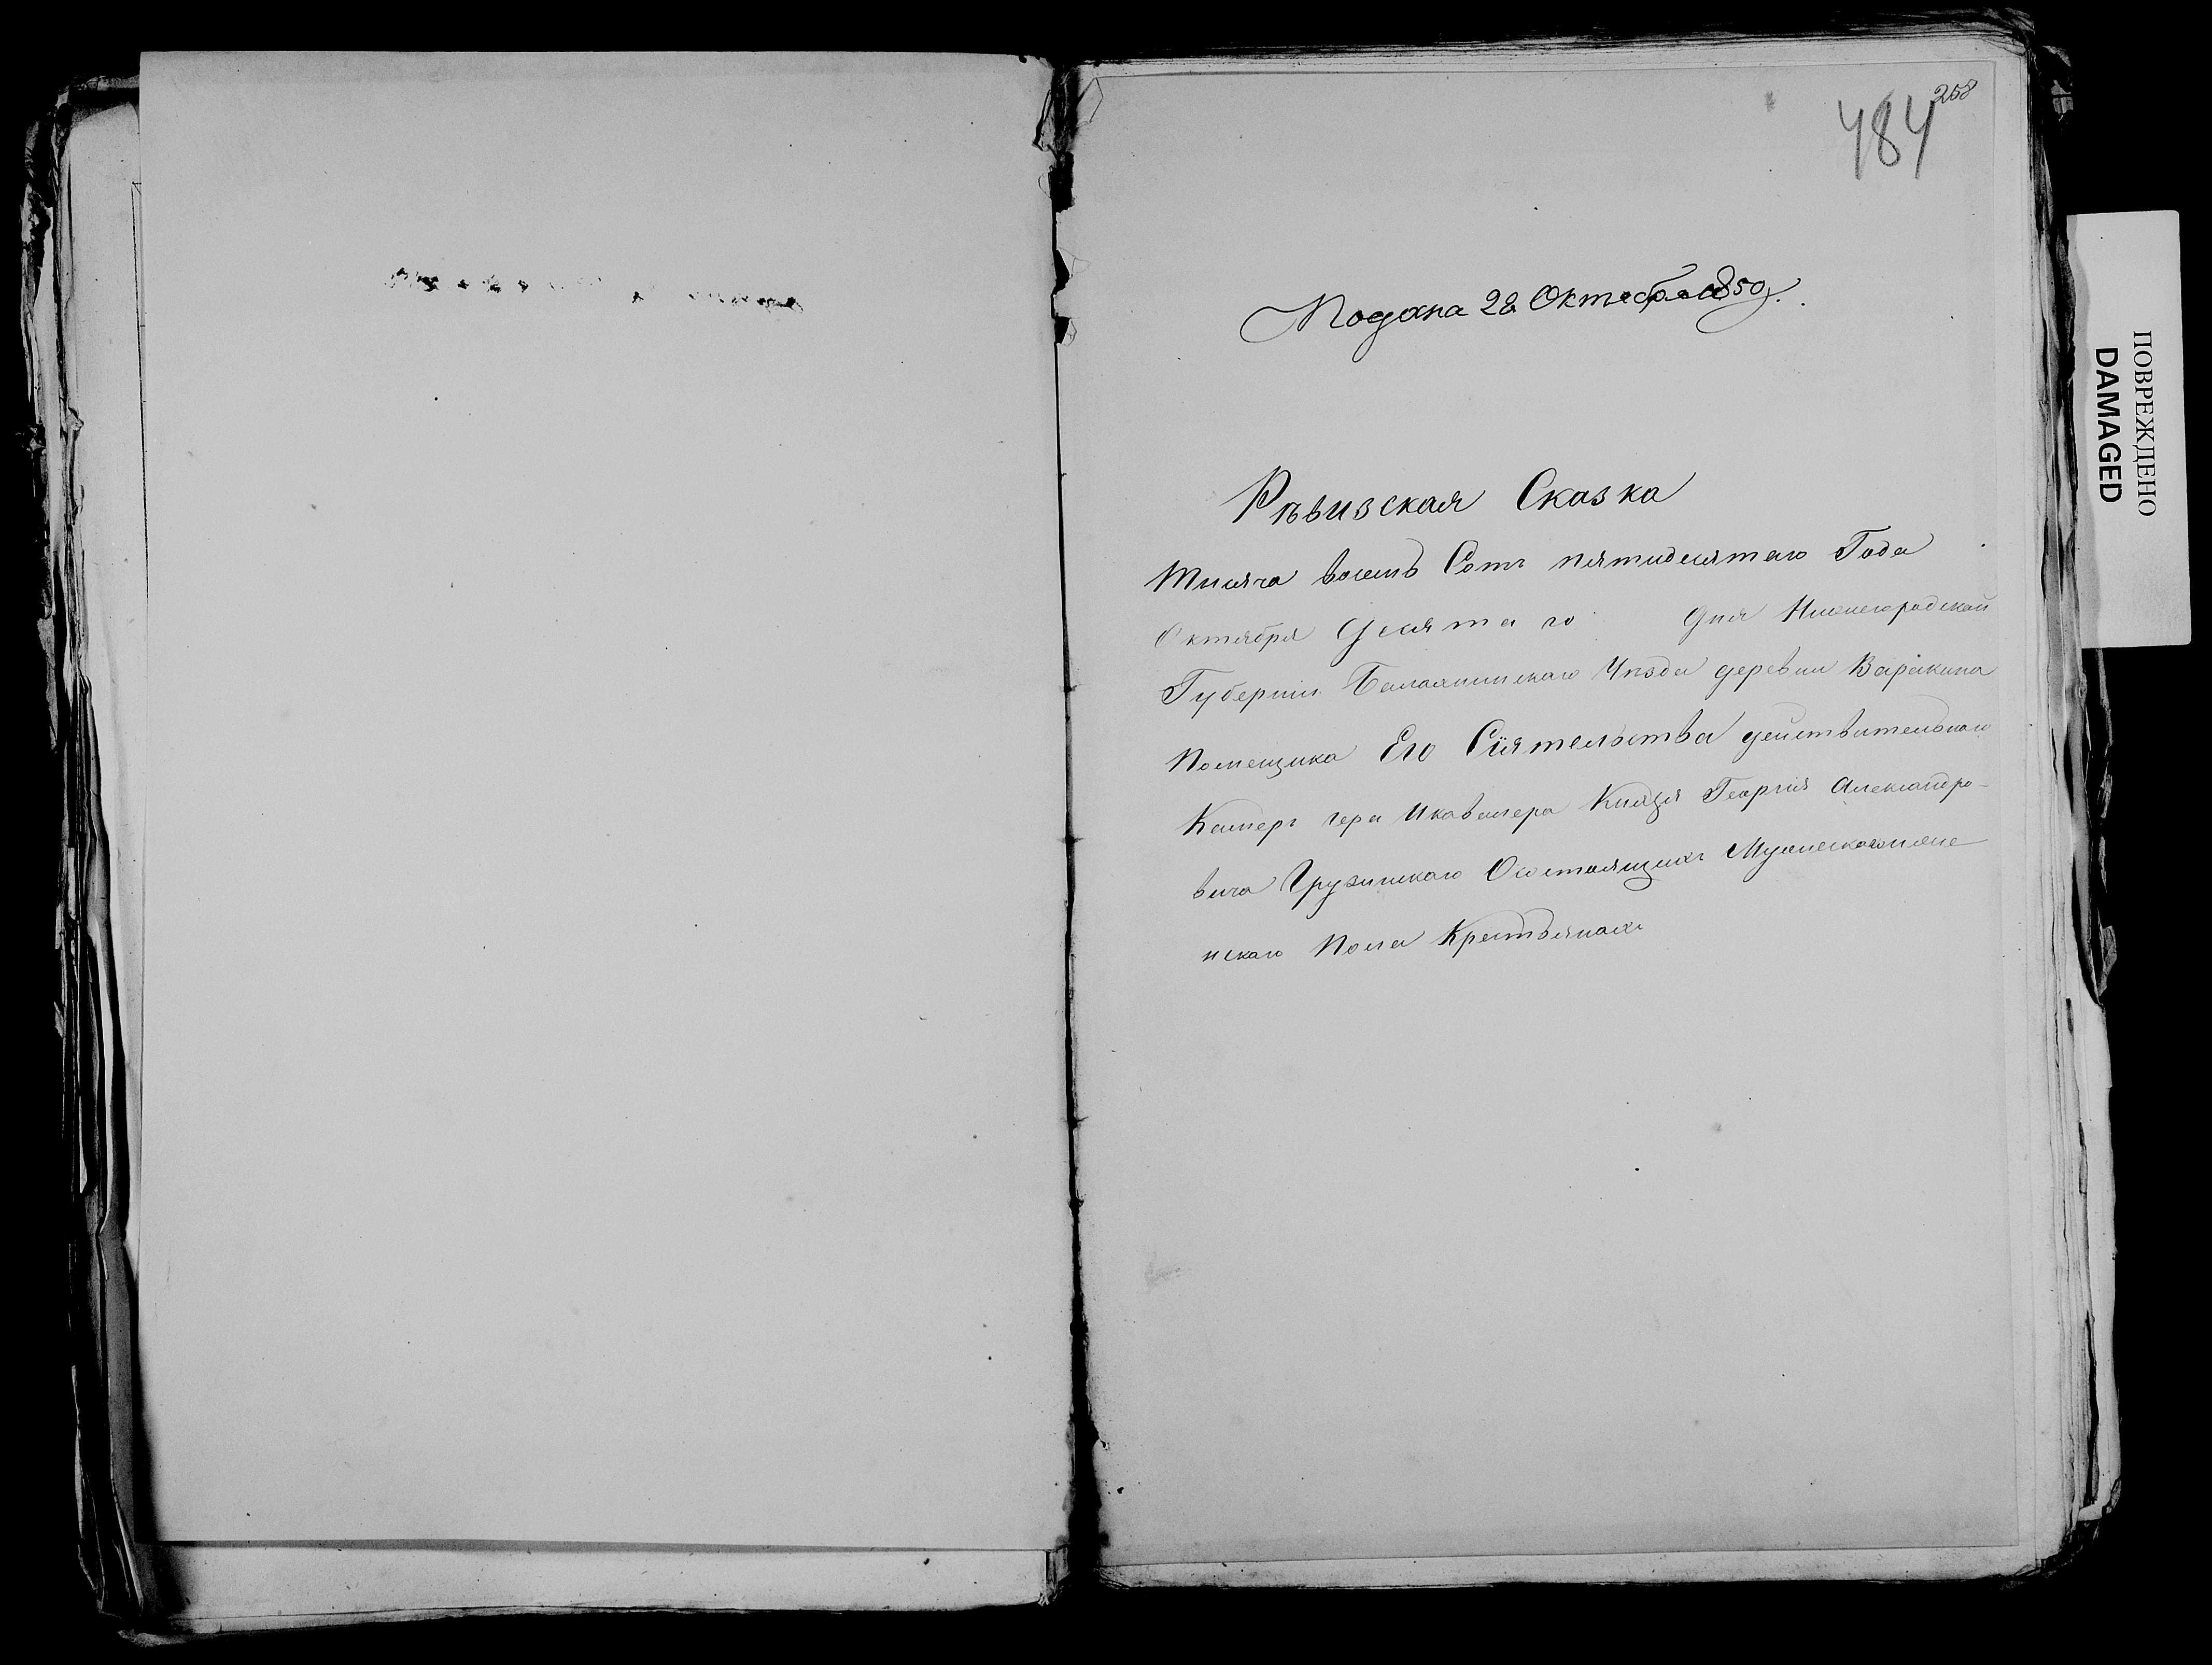 258
484
Подана 28 Октября 1850 г.
Рѣвизская Сказка
Тысяча восемь Сотъ пятидесятаго Года
Октября Десятаго Дня Нижегородской
Губерніи Балахнинскаго Уѣзда деревни Варакина
Помещика Его Сіятельства действительнаго
Камергера И кавалера Князя Георгия Александро-
вича Грузинскаго Осостоящихъ Мужескаго и жене
нскаго Пола Крестьянахъ
ПОВРЕЖДЕНО
DAMAGED